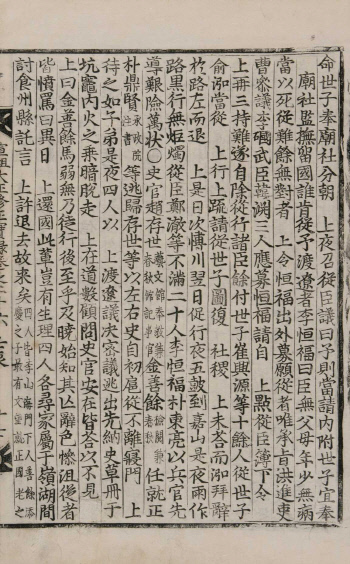 命世子奉廟社分朝 上夜召從臣議曰予則當請內附世子宜奉
廟社監撫留國誰肯從予渡遼者李恒福曰臣無父母年少無病
當以死從難餘無對者 上令恒福出外募願從者唯承旨洪進吏
曹參議李 武臣韓淵三人應募恒福請自 上點從臣簿下令
上再三持難遂自除從行諸臣餘付世子崔興源等十餘人從世子
俞泓當從 上行上疏請從世子圖復 社稷 上未答而泓拜辭
於路左而退 上是日次博川翌日促行夜五鼓到嘉山是夜雨作
路黑行無炬燭從臣鄭澈等不滿二十人李恒福朴東亮以兵官先
導艱險萬狀○史官趙存世藝文館奉敎兼春秋館記事官金善餘檢閱兼春秋任就正
朴鼎賢承政院注書等逃歸存世等以左右史自初扈從不離寢門 上
待之如子弟是夜四人以 上渡遼議決密議逃出先納史草冊于
坑竈內火之乘暗脫走 上在道數顧問史官安在皆答以不見
上曰金善餘馬弱無乃徒行後至乎及曉始知其亡辭色慘沮從者
皆憤罵曰異日 上還國此輩豈有生理四人各尋家屬于嶺湖間
討食州縣託言 上許退去故來矣四人皆李山海門下人善餘添慶之子最有文望就正國老之